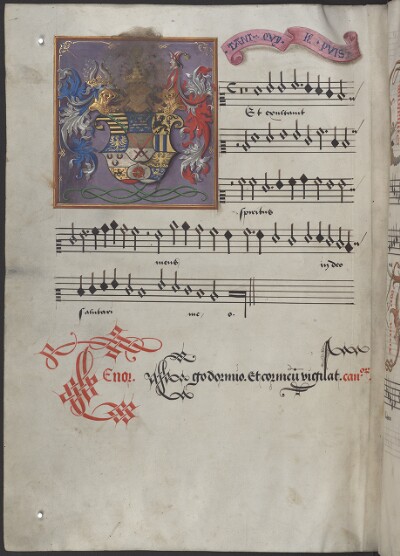 TANT QVE IE PVIS
Et exultavit
spiritus
meus in deo
salutari me o.
Tenor. Ego dormio. Et cor meū vigilat. canoꝝ